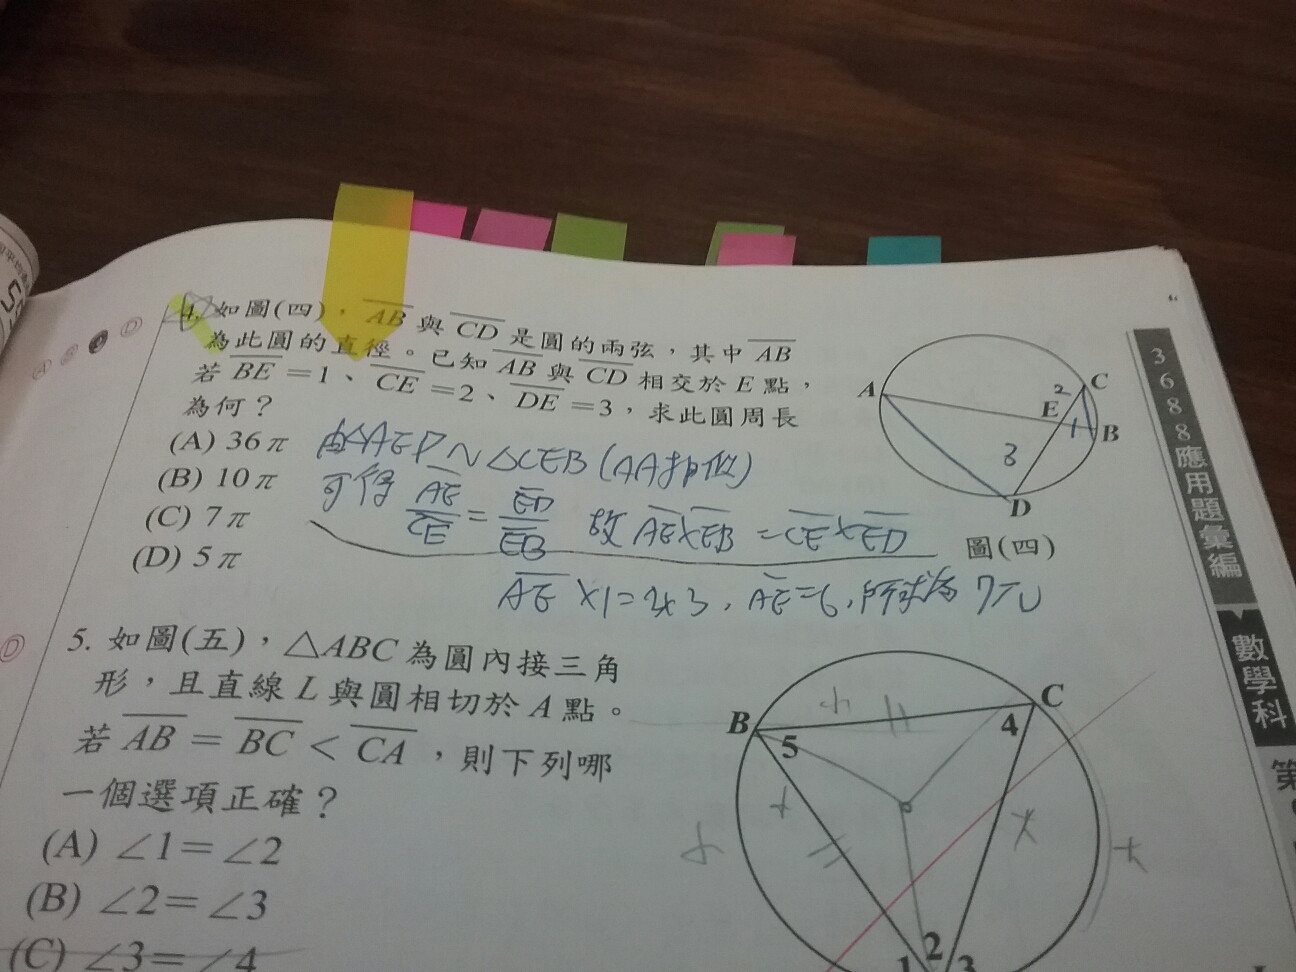 4. 如圖(四)，AB與CD是圓的兩弦，其中AB
為此圓的直徑。已知AB與CD相交於E點，
若BE=1、CE=2、DE=3，求此圓周長
為何？
(A) 36π
(B) 10π
(C) 7π
(D) 5π
由△AED~△CEB(AA相似)
可得 AE/CE = ED/EB 故 AE×EB = CE×ED
AE×1=2×3，AE=6，所求為7π
A
2
C
E
1
B
3
D
圖(四)
5. 如圖(五)，△ABC為圓內接三角
形，且直線L與圓相切於A點。
若AB=BC<CA，則下列哪
一個選項正確？
(A) ∠1=∠2
(B) ∠2=∠3
(C) ∠3=∠4
B
C
5
4
1
2
3
D
3688應用題彙編
數學科
第